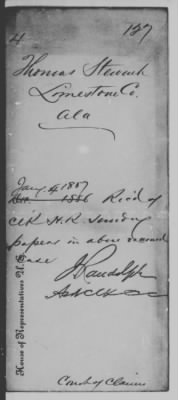 4
137
Thomas
Limestone Co.
Ala
Jany 4, 1887
Dec. 1886 Rec'd of
Clk H.R. sundry
papers in above
case
J Randolph
Asst Clk
Court of Claims
House of Representatives U.S.